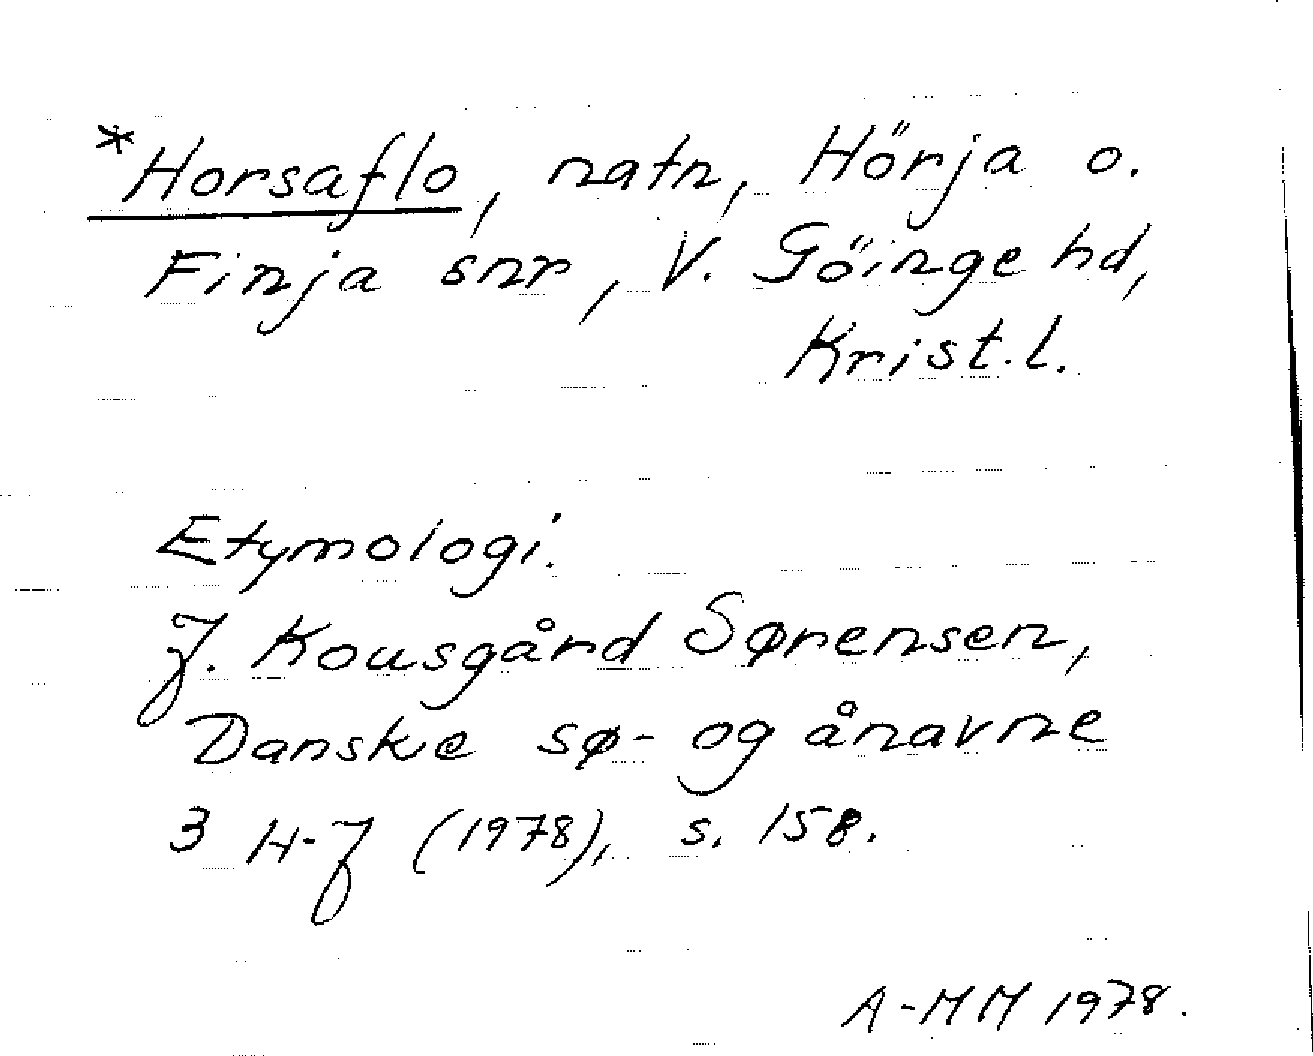 *Horsaflo, natn, Hörja o.
Finja snr, V. Göinge hd,
Krist. l.
Etymologi.
J. Kousgård Sørensen,
Danske sø- og ånavne
3 H-J (1978), s. 158.
A-MM 1978.